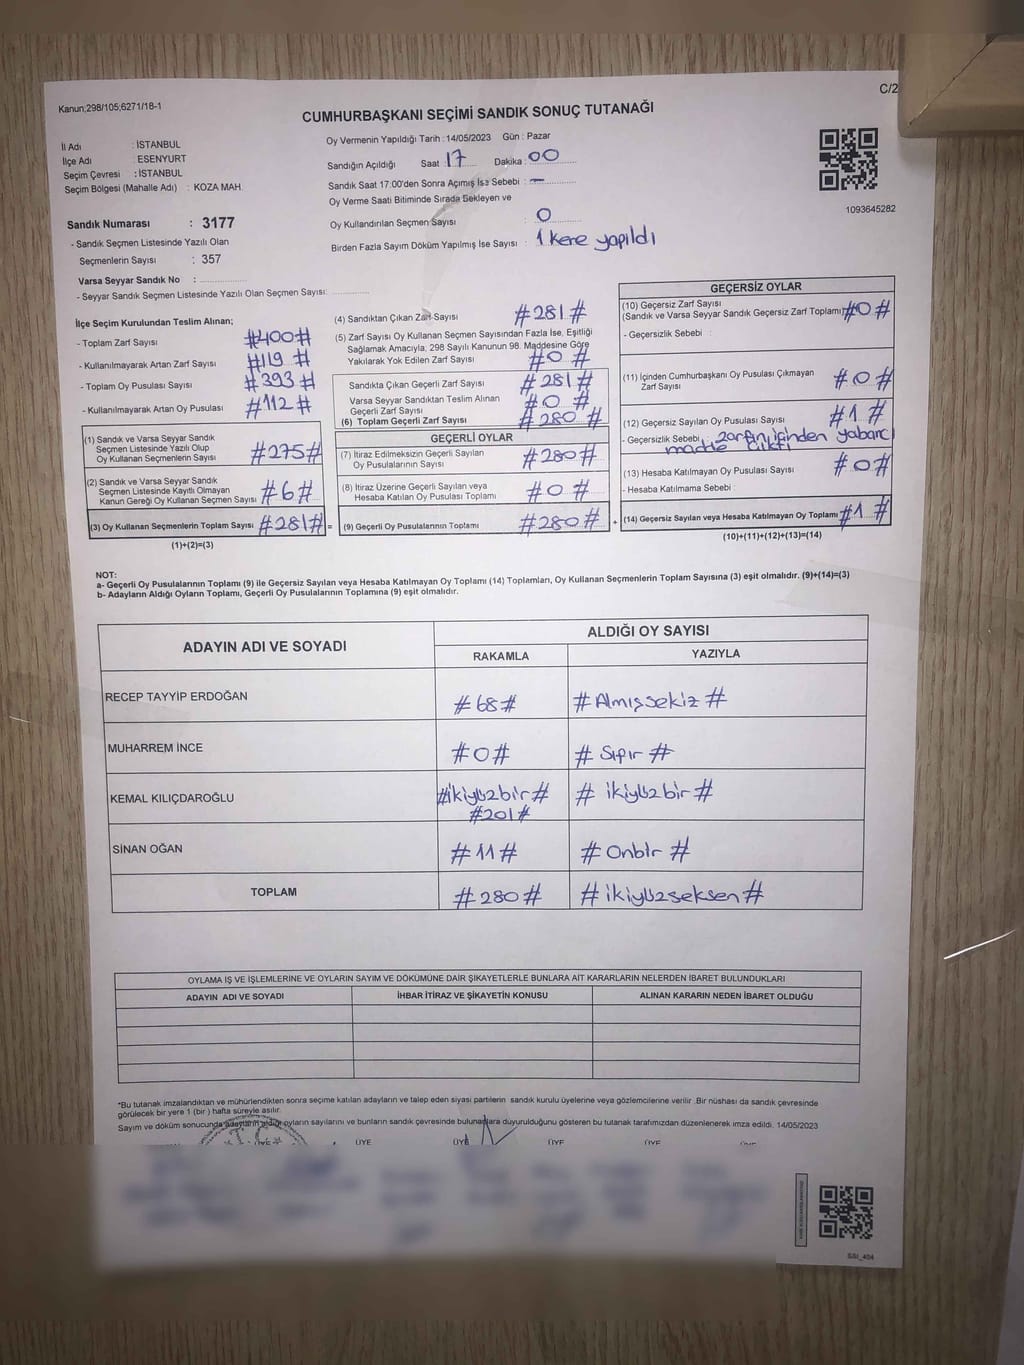 Kanun;298/105;6271/18-1
C/2
CUMHURBAŞKANI SEÇİMİ SANDIK SONUÇ TUTANAĞI
İl Adı : İSTANBUL
İlçe Adı : ESENYURT
Seçim Çevresi : İSTANBUL
Seçim Bölgesi (Mahalle Adı) : KOZA MAH.
Oy Vermenin Yapıldığı Tarih : 14/05/2023 Gün : Pazar
Sandığın Açıldığı Saat 17 Dakika : 00
Sandık Saat 17:00'den Sonra Açımış İse Sebebi : —
Oy Verme Saati Bitiminde Sırada Bekleyen ve
Oy Kullandırılan Seçmen Sayısı : 0
Birden Fazla Sayım Döküm Yapılmış İse Sayısı : 1 kere yapıldı
1093645282
Sandık Numarası : 3177
- Sandık Seçmen Listesinde Yazılı Olan
Seçmenlerin Sayısı : 357
Varsa Seyyar Sandık No :
- Seyyar Sandık Seçmen Listesinde Yazılı Olan Seçmen Sayısı:
İlçe Seçim Kurulundan Teslim Alınan;
- Toplam Zarf Sayısı #400#
- Kullanılmayarak Artan Zarf Sayısı #119 #
- Toplam Oy Pusulası Sayısı #393#
- Kullanılmayarak Artan Oy Pusulası #112#
(1) Sandık ve Varsa Seyyar Sandık
Seçmen Listesinde Yazılı Olup
Oy Kullanan Seçmenlerin Sayısı #275#
(2) Sandık ve Varsa Seyyar Sandık
Seçmen Listesinde Kayıtlı Olmayan
Kanun Gereği Oy Kullanan Seçmen Sayısı #6#
(3) Oy Kullanan Seçmenlerin Toplam Sayısı #281# =
(1)+(2)=(3)
(4) Sandıktan Çıkan Zarf Sayısı #281#
(5) Zarf Sayısı Oy Kullanan Seçmen Sayısından Fazla İse, Eşitliği
Sağlamak Amacıyla, 298 Sayılı Kanunun 98. Maddesine Göre
Yakılarak Yok Edilen Zarf Sayısı #0 #
Sandıkta Çıkan Geçerli Zarf Sayısı #281#
Varsa Seyyar Sandıktan Teslim Alınan
Geçerli Zarf Sayısı #0 #
(6) Toplam Geçerli Zarf Sayısı #280 #
GEÇERLİ OYLAR
(7) İtiraz Edilmeksizin Geçerli Sayılan
Oy Pusulalarının Sayısı #280#
(8) İtiraz Üzerine Geçerli Sayılan veya
Hesaba Katılan Oy Pusulası Toplamı #0 #
(9) Geçerli Oy Pusulalarının Toplamı #280 # +
GEÇERSİZ OYLAR
(10) Geçersiz Zarf Sayısı
(Sandık ve Varsa Seyyar Sandık Geçersiz Zarf Toplamı) #0 #
- Geçersizlik Sebebi :
(11) İçinden Cumhurbaşkanı Oy Pusulası Çıkmayan
Zarf Sayısı #0 #
(12) Geçersiz Sayılan Oy Pusulası Sayısı #1 #
- Geçersizlik Sebebi : zarfın içinden yabancı
madde çıktı
(13) Hesaba Katılmayan Oy Pusulası Sayısı #0#
- Hesaba Katılmama Sebebi :
(14) Geçersiz Sayılan veya Hesaba Katılmayan Oy Toplamı #1 #
(10)+(11)+(12)+(13)=(14)
NOT:
a- Geçerli Oy Pusulalarının Toplamı (9) ile Geçersiz Sayılan veya Hesaba Katılmayan Oy Toplamı (14) Toplamları, Oy Kullanan Seçmenlerin Toplam Sayısına (3) eşit olmalıdır. (9)+(14)=(3)
b- Adayların Aldığı Oyların Toplamı, Geçerli Oy Pusulalarının Toplamına (9) eşit olmalıdır.
ADAYIN ADI VE SOYADI
ALDIĞI OY SAYISI
RAKAMLA YAZIYLA
RECEP TAYYİP ERDOĞAN #68# #Almışsekiz #
MUHARREM İNCE #0# # Sıfır #
KEMAL KILIÇDAROĞLU #ikiyüzbir# # ikiyüzbir #
#201#
SİNAN OĞAN #11# # Onbir #
TOPLAM #280# # ikiyüzseksen #
OYLAMA İŞ VE İŞLEMLERİNE VE OYLARIN SAYIM VE DÖKÜMÜNE DAİR ŞİKAYETLERLE BUNLARA AİT KARARLARIN NELERDEN İBARET BULUNDUKLARI
ADAYIN ADI VE SOYADI İHBAR İTİRAZ VE ŞİKAYETİN KONUSU ALINAN KARARIN NEDEN İBARET OLDUĞU
*Bu tutanak imzalandıktan ve mühürlendikten sonra seçime katılan adayların ve talep eden siyasi partilerin sandık kurulu üyelerine veya gözlemcilerine verilir .Bir nüshası da sandık çevresinde
görülecek bir yere 1 (bir ) hafta süreyle asılır.
Sayım ve döküm sonucunda adayların aldığı oyların sayılarını ve bunların sandık çevresinde bulunanlara duyurulduğunu gösteren bu tutanak tarafımızdan düzenlenerek imza edildi. 14/05/2023
T.C.
ÜYE ÜYE ÜYE ÜYE
SSI_404